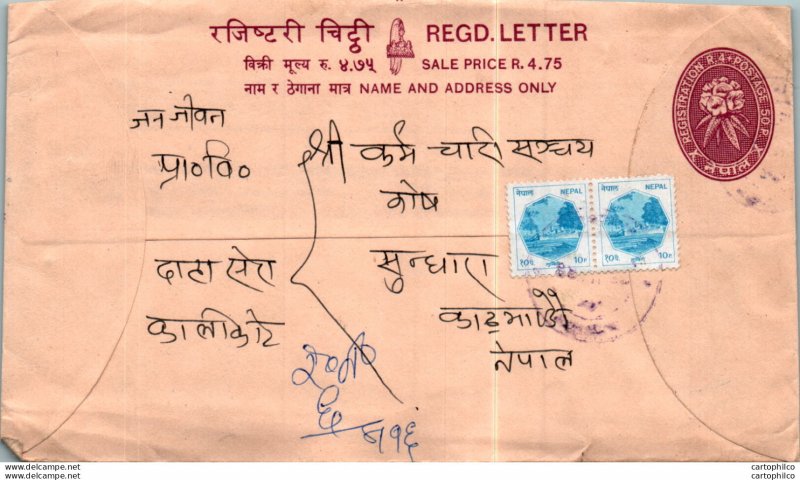 रजिष्टरी चिट्ठी REGD. LETTER
बिक्री मूल्य रु. ४.७५ SALE PRICE R. 4.75
नाम र ठेगाना मात्र NAME AND ADDRESS ONLY
REGISTRATION R.4+POSTAGE 50 P.
नेपाल
जन जीवन
प्रा०वि०
श्री कर्म चारी सञ्चय
कोष
सुन्धारा
काठमाण्डौ
नेपाल
कालीकोट
नेपाल NEPAL
१०पै. 10P
नेपाल NEPAL
१०पै. 10P
www.delcampe.net
cartophilco
www.delcampe.net
cartophilco